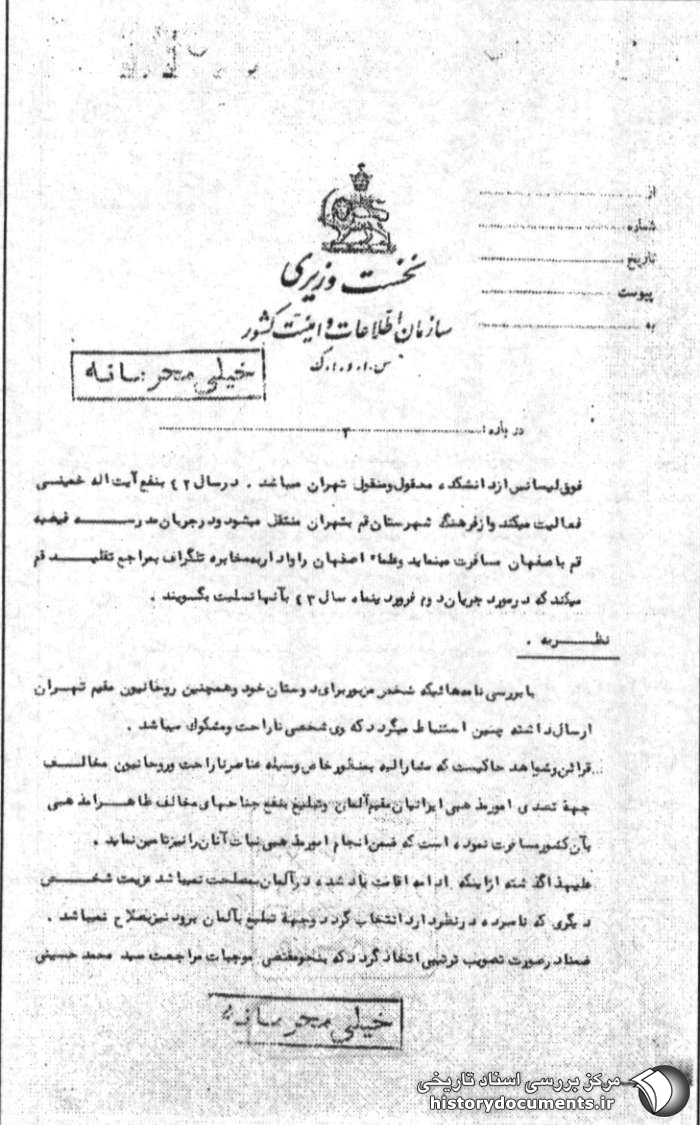 از
شماره
تاریخ
پیوست
به
نخست وزیری
سازمان اطلاعات و امنیت کشور
س.ا.و.ا.ک
خیلی محرمانه
درباره: ۲
فوق لیسانس از دانشکده معقول و منقول تهران میباشد . در سال ۴۲ بنفع آیت اله خمینی
فعالیت میکند و از فرهنگ شهرستان قم بتهران منتقل میشود و در جریان مدرسه فیضیه
قم باصفهان مسافرت مینماید و علماء اصفهان را وادار بمخابره تلگراف بمراجع تقلید قم
میکند که در مورد جریان دوم فروردینماه سال ۴۳ بآنها تسلیت بگویند .
نظریه .
با بررسی نامه هائیکه شخص مزبور برای دوستان خود و همچنین روحانیون مقیم تهران
ارسال داشته چنین استنباط میگردد که وی شخصی ناراحت و مشکوک میباشد .
قرائن و شواهد حاکیست که مشارالیه بمنظور خاص وسیله عناصر ناراحت و روحانیون مخالف
جهة تصدی امور مذهبی ایرانیان مقیم آلمان و تبلیغ بنفع جناحهای مخالف ظاهرا مذهبی
بآن کشور مسافرت نموده است که ضمن انجام امور مذهبی نیات آنان را نیز تامین نماید .
علیهذا گذشته از اینکه ادامه اقامت یاد شده در آلمان بمصلحت نمیباشد عزیمت شخص
دیگری که نامبرده در نظر دارد انتخاب گردد و جهة تبلیغ بآلمان برود نیز بصلاح نمیباشد .
ضمنا در صورت تصویب ترتیبی اتخاذ گردد که بنحو مقتضی موجبات مراجعت سید محمد حسینی
خیلی محرمانه
مرکز بررسی اسناد تاریخی
historydocuments.ir